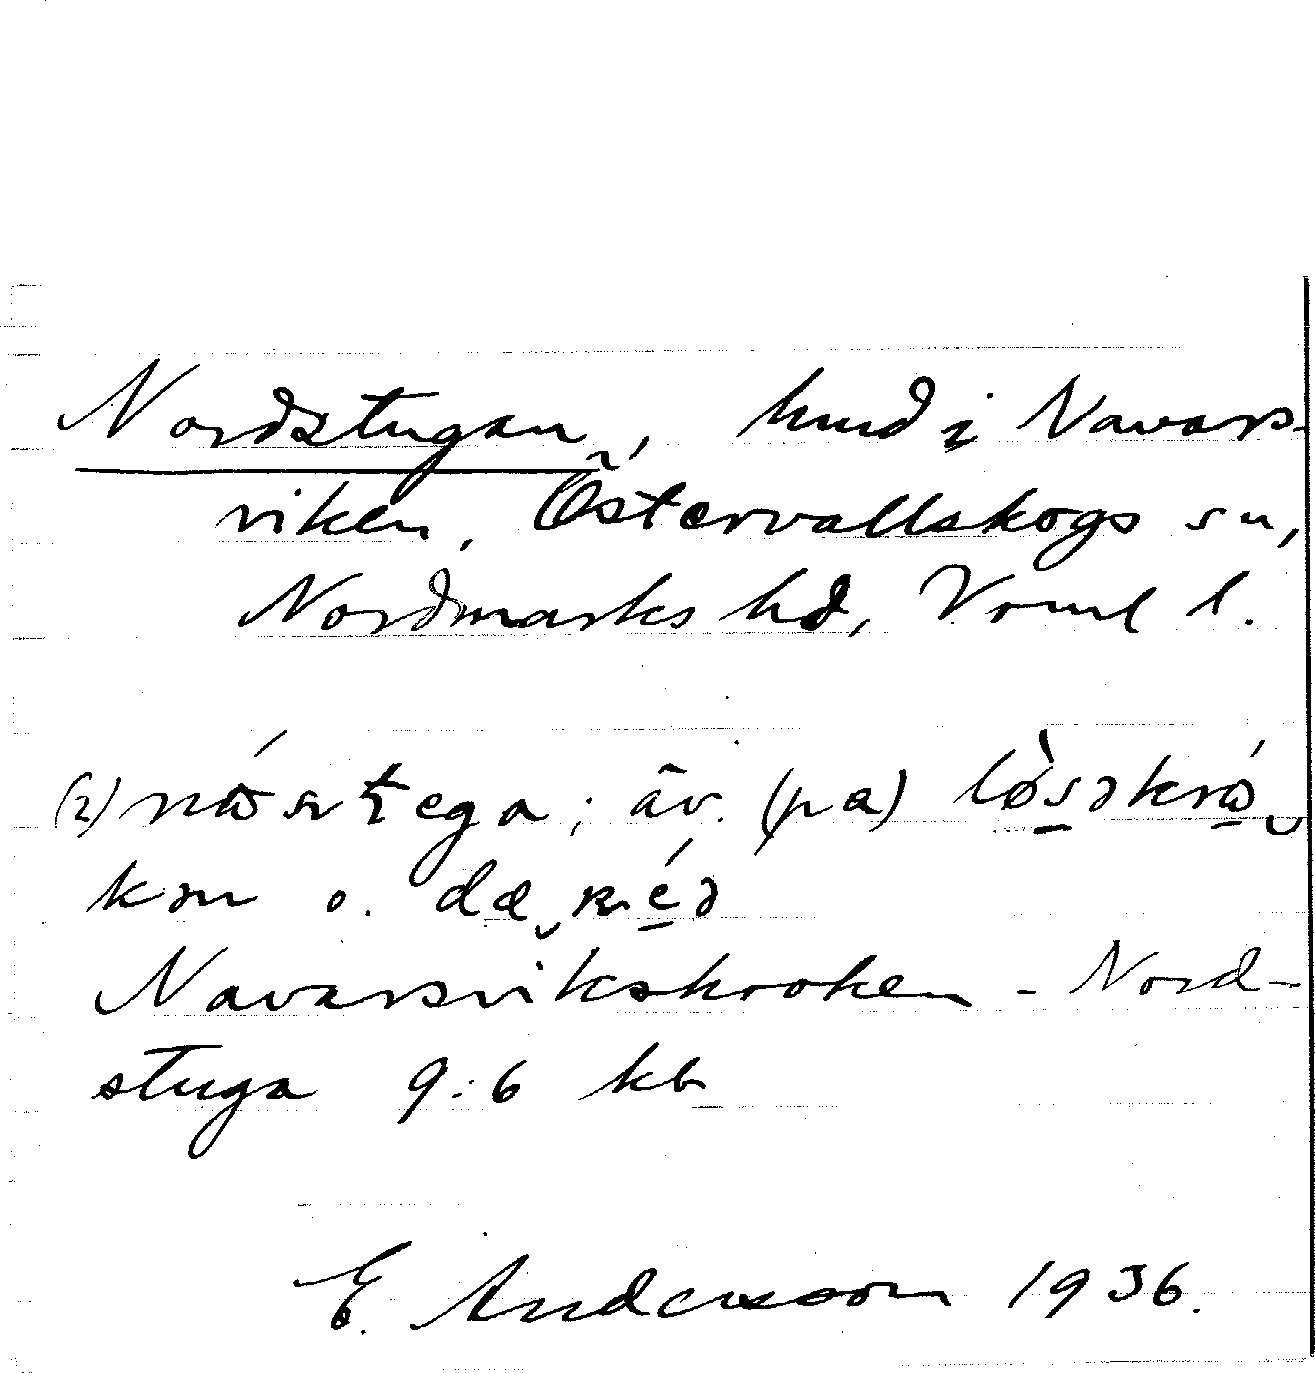 Nordstugan, hmd i Navars-
viken, Östervallskogs sn,
Nordmarks hd, Vrml l.
(2) nɷ́sʈega; äv. (pa)
o.
Navarsvikskroken - Nord-
stuga 9:6 kb
E. Andersson 1936.